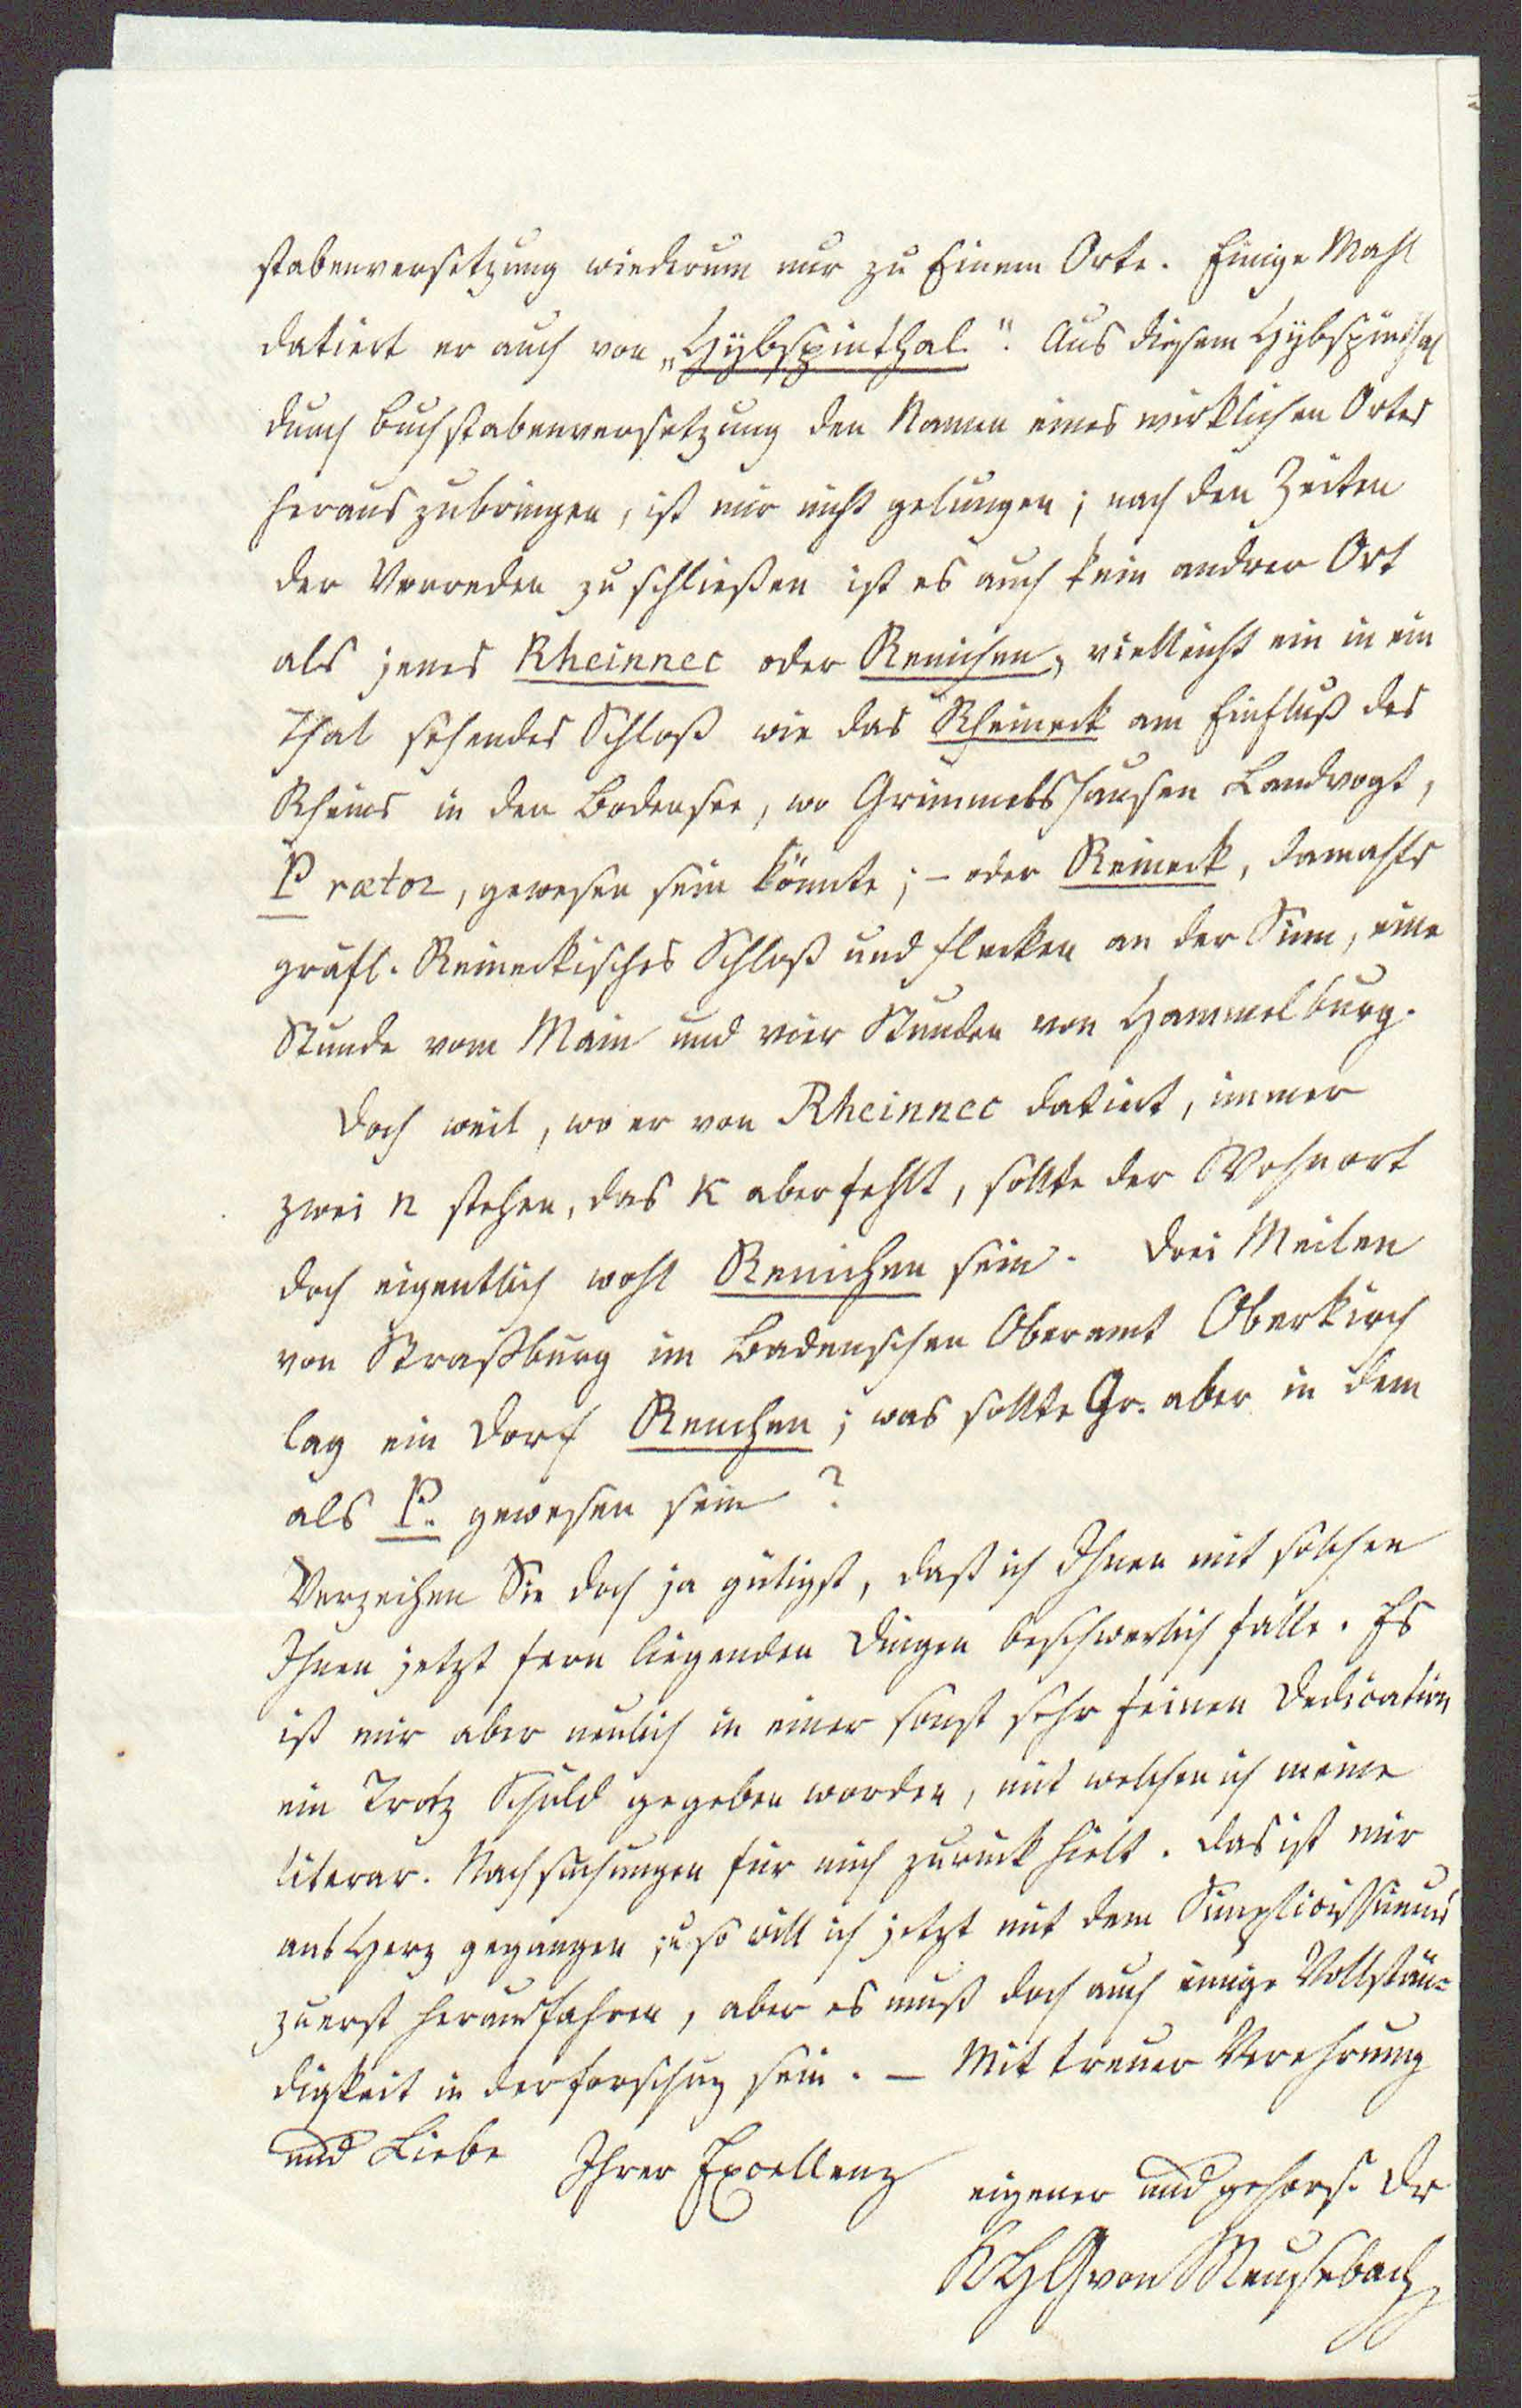 stabenversetzung wiederum nur zu Einem Orte. Einige Mahl
datiert er auch von „Hybspinthal". Aus diesem Hybspinthal
durch Buchstabenversetzung den Namen eines wirklichen Ortes
herauszubringen, ist mir nicht gelungen; nach den Zeiten
der Vorreden zu schließen ist es auch kein andrer Ort
als jenes Rheinnec oder Renichen, vielleicht ein in ein
Thal sehendes Schloß wie das Rheineck am Einfluß des
Rheins in den Bodensee, wo Grimmelshausen Landvogt,
Prætor, gewesen sein könnte; – oder Reineck, damahls
gräfl. Reineckisches Schloß und Flecken an der Sinn, eine
Stunde vom Main und vier Stunden von Hammelburg.
Doch weil, wo er von Rheinnec datiert, immer
zwei n stehen, das K aber fehlt, sollte der Wohnort
doch eigentlich wohl Renichen sein. Drei Meilen
von Straßburg im Badenschen Oberamt Oberkirch
lag ein Dorf Renchen; was sollte Gr. aber in dem
als P. gewesen sein?
Verzeihen Sie doch ja gütigst, daß ich Ihnen mit solchen
Ihnen jetzt fern liegenden Dingen beschwerlich falle. Es
ist mir aber neulich in einer sonst sehr feinen Dedication
ein Trotz Schuld gegeben worden, mit welchen ich meine
literar. Nachsuchungen für mich zurückhielt. Das ist mir
ans Herz gegangen; u so will ich jetzt mit dem Simplicissimus
zuerst herausfahren, aber es muß doch auch einige Vollstän-
digkeit in der Forschung sein. – Mit treuer Verehrung
und Liebe Ihrer Excellenz
eigener und gehors. Dr
KHG von Meusebach